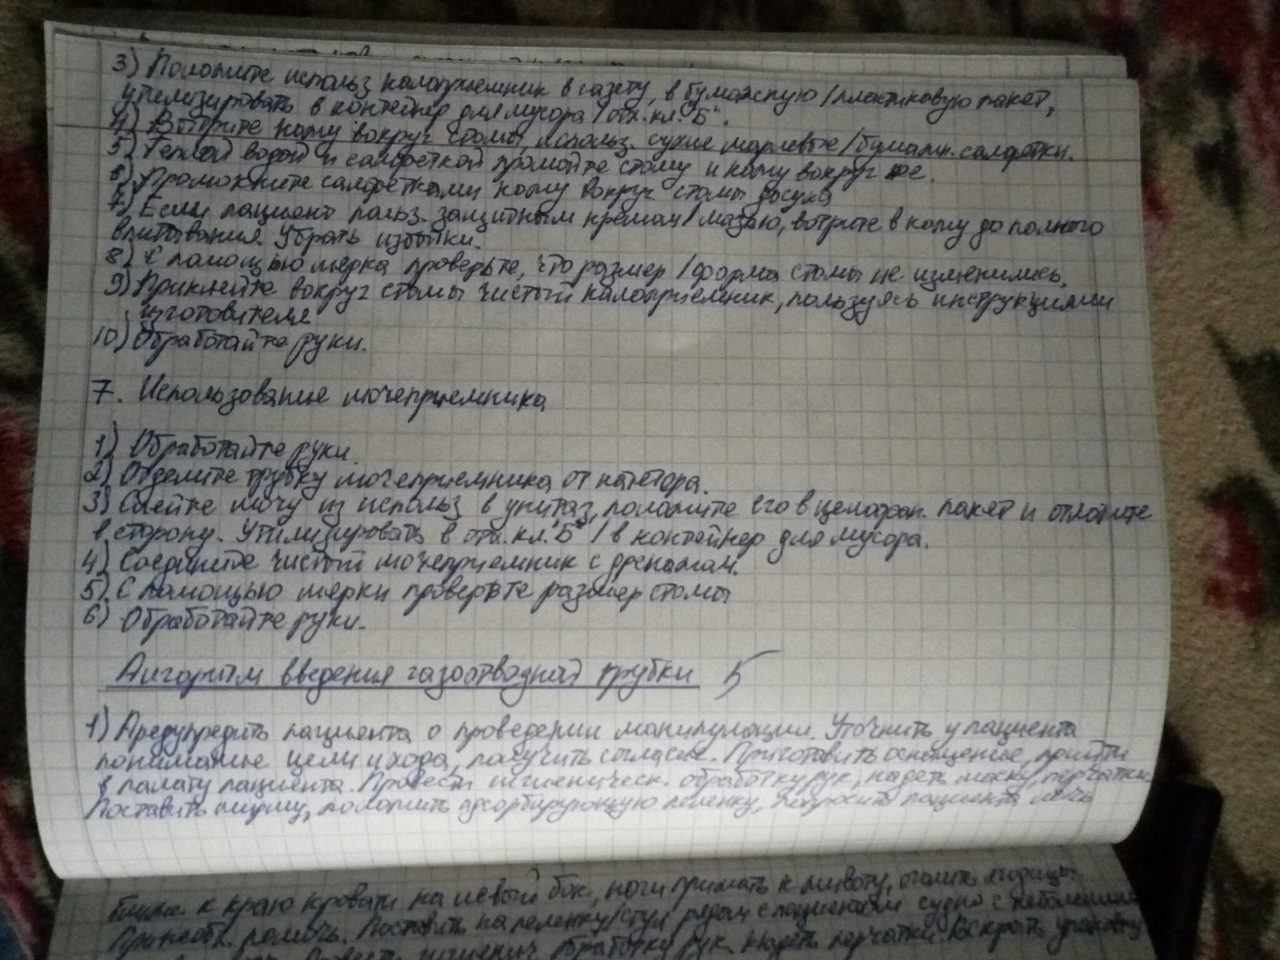 3) Положите использ калоприемник в газету, в бумажную/пластиковую пакет,
утилизировать в контейнер для мусора/отх. кл. "Б".
4) Вытрите кожу вокруг стомы, использ. сухие марлевые/бумажн. салфетки.
5) Теплой водой и салфеткой промойте стому и кожу вокруг нее.
6) Промокните салфетками кожу вокруг стомы досуха
7) Если пациент польз. защитным кремом/мазью, вотрите в кожу до полного
впитывания. Убрать избытки.
8) С помощью мерка проверьте, что размер/форма стомы не изменились,
9) Приклейте вокруг стомы чистый калоприемник, пользуясь инструкциями
изготовителя
10) Обработайте руки.
7. Использование мочеприемника
1) Обработайте руки.
2) Отделите трубку мочеприемника от катетора.
3) Слейте мочу из использ в унитаз, положите его в целофан. пакет и отложите
в сторону. Утилизировать в отх. кл. "Б" / в контейнер для мусора.
4) Соедините чистый мочеприемник с дренажом.
5) С помощью мерки проверьте размер стомы
6) Обработайте руки.
Алгоритм введения газоотводной трубки 5
1) Предупредить пациента о проведении манипуляции. Уточнить у пациента
понимание цели и хода, получить согласие. Приготовить оснащение, прийти
в палату пациента. Провести гигиеническ. обработку рук, надеть маску, перчатки.
Поставить ширму, положить адсорбирующую пеленку, попросить пациента лечь
ближе к краю кровати на левый бок, ноги прижать к животу, оголить ягодицы
помочь. Поставить на пеленку/стул рядом с пациентом судно с небольшим
гигиенич. обработку рук. надеть перчатки. Вскрыть упаковку